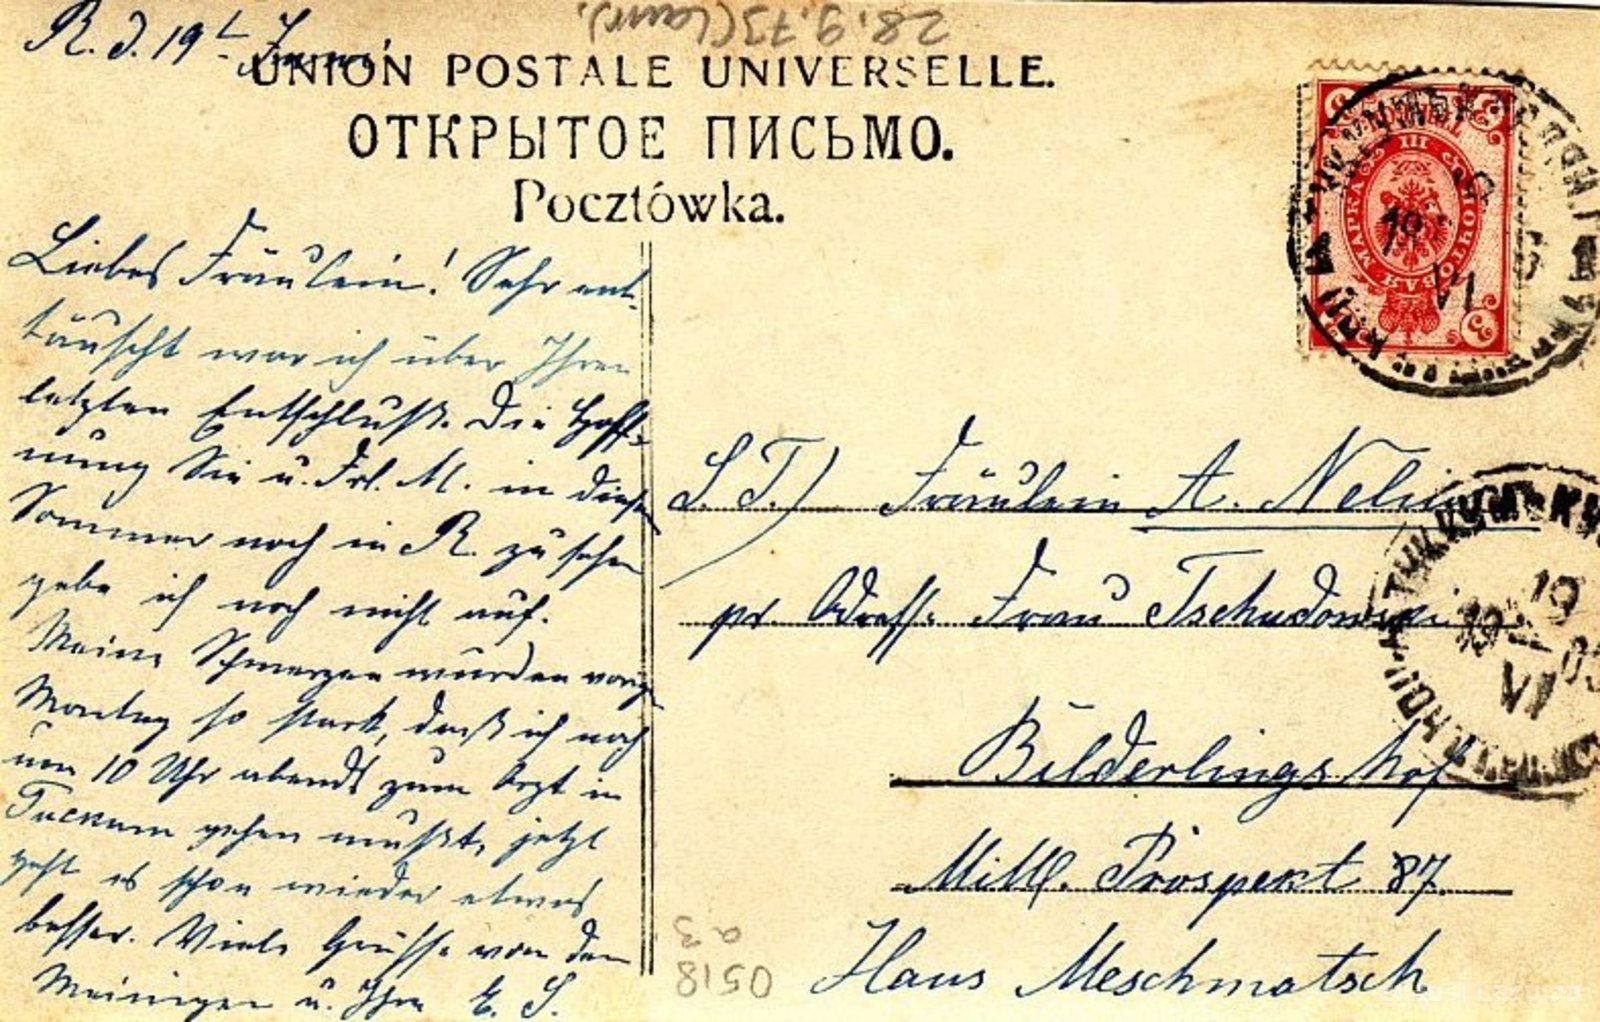 28.9.73 (Laur).
R. d. 19t Juni
UNION POSTALE UNIVERSELLE.
ОТКРЫТОЕ ПИСЬМО.
Pocztówka.
Liebes Fräulein! Sehr ent-
täuscht war ich über Ihren
letzten Entschluß. Die Hoff-
nung Sie u. Frl. M. in diesem
Sommer noch in R. zu sehen
gebe ich noch nicht auf.
Meine Schmerzen wurden vorig.
Montag so stark, daß ich noch
um 10 Uhr abends zum Arzt in
Tuckum gehen mußte, jetzt
geht es schon wieder etwas
besser. Viele Grüsse von den
Meinigen u. Ihre E. S.
S. T.) Fräulein A.
pr. Adresse Frau
Bilderlingshof
Mittl. Prospekt 87.
Haus Meschmatsch
МАРКА
III
3
3
19
VI
ТУККУМЪ
19
VI
05
0518
a 3